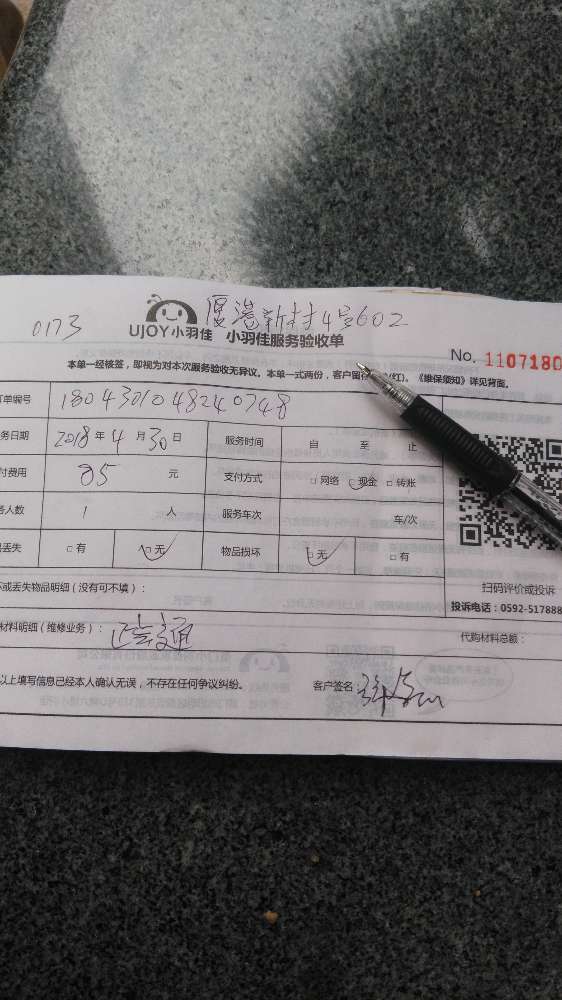 厦港新村4号602
0173
UJOY小羽佳 小羽佳服务验收单
No. 1107180
本单一经核签，即视为对本次服务验收无异议。本单一式两份，客户留存 红)。《维保须知》详见背面。
单编号 1804301048240748
务日期 2018年4月30日 服务时间 自 至 止
付费用 85 元 支付方式 □网络 □现金 □转账
人数 1 人 服务车次 车/次
丢失 □有 □无 物品损坏 □无 □有
或丢失物品明细（没有可不填）：
扫码评价或投诉
投诉电话：0592-517888
材料明细（维修业务）： 通
代购材料总额：
以上填写信息已经本人确认无误，不存在任何争议纠纷。 客户签名：